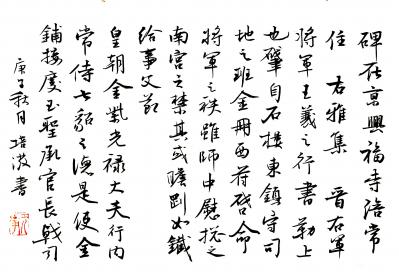 碑在京興福寺陪常
住 右雅集 晉右軍
將軍王羲之行書勒上
也肇自石樓東鎮守司
地之班金冊西符啓命
將軍之秩雖師中慰撫之
南宮之禁其或贍剛如鐵
給事父節
皇朝金紫光祿大夫行內
常侍七貂之
是使金
鋪接慶玉聖承官長戟司
庚子秋月 培波書